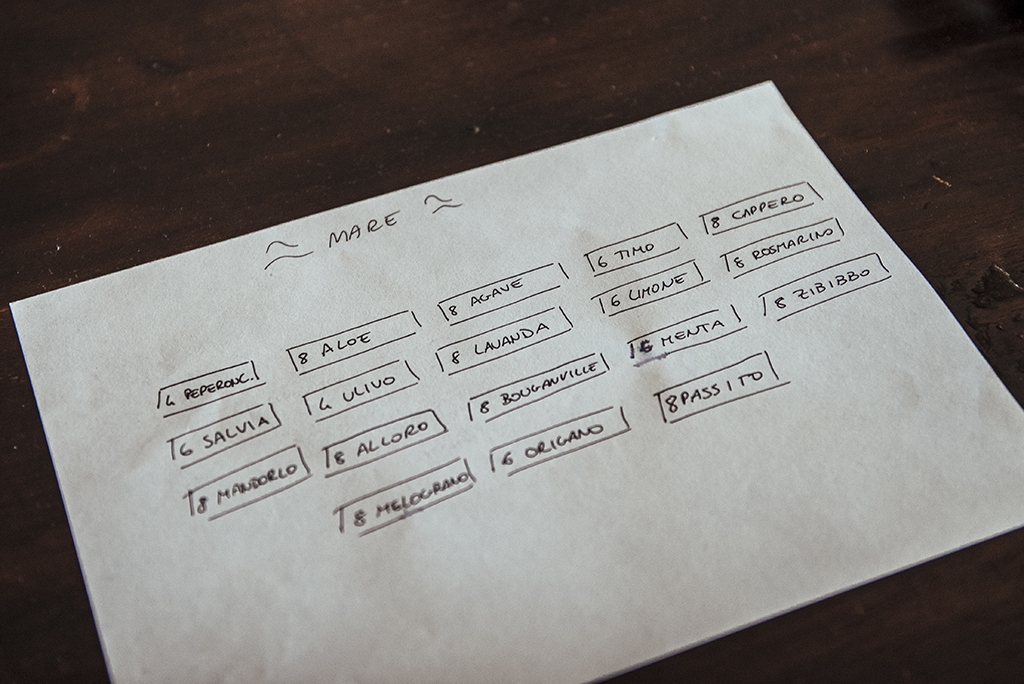 MARE
4 PEPERONC.
8 ALOE
8 AGAVE
6 TIMO
8 CAPPERO
6 SALVIA
4 ULIVO
8 LAVANDA
6 LIMONE
8 ROSMARINO
8 MANDORLO
8 ALLORO
8 BOUGANVILLE
6 MENTA
8 ZIBIBBO
8 MELOGRANO
6 ORIGANO
8 PASSITO